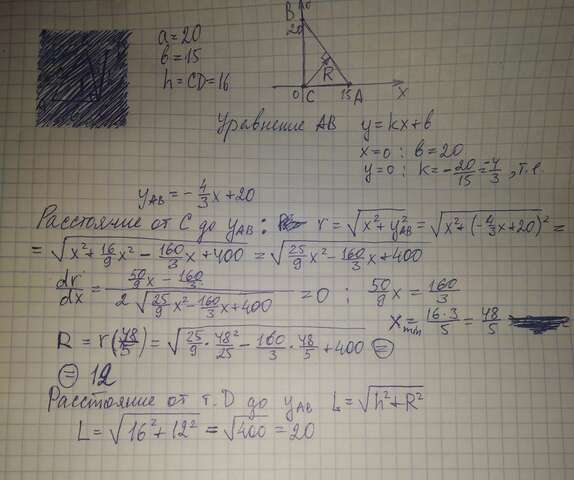 a=20
b=15
h=CD=16
B
20
R
0 C 15 A X
Уравнение AB y=kx+b
x=0: b=20
y=0: k=-20/15=-4/3, т.е.
y_AB=-4/3x+20
Расстояние от C до y_AB: r=√(x²+y²_AB)=√(x²+(-4/3x+20)²)=
=√(x²+16/9x²-160/3x+400)=√(25/9x²-160/3x+400)
dr/dx=(50/9x-160/3)/(2√(25/9x²-160/3x+400))=0; 50/9x=160/3
x_min=16·3/5=48/5
R=r(48/5)=√(25/9·48²/25-160/3·48/5+400)=
=12
Расстояние от т.D до y_AB L=√(h²+R²)
L=√(16²+12²)=√400=20